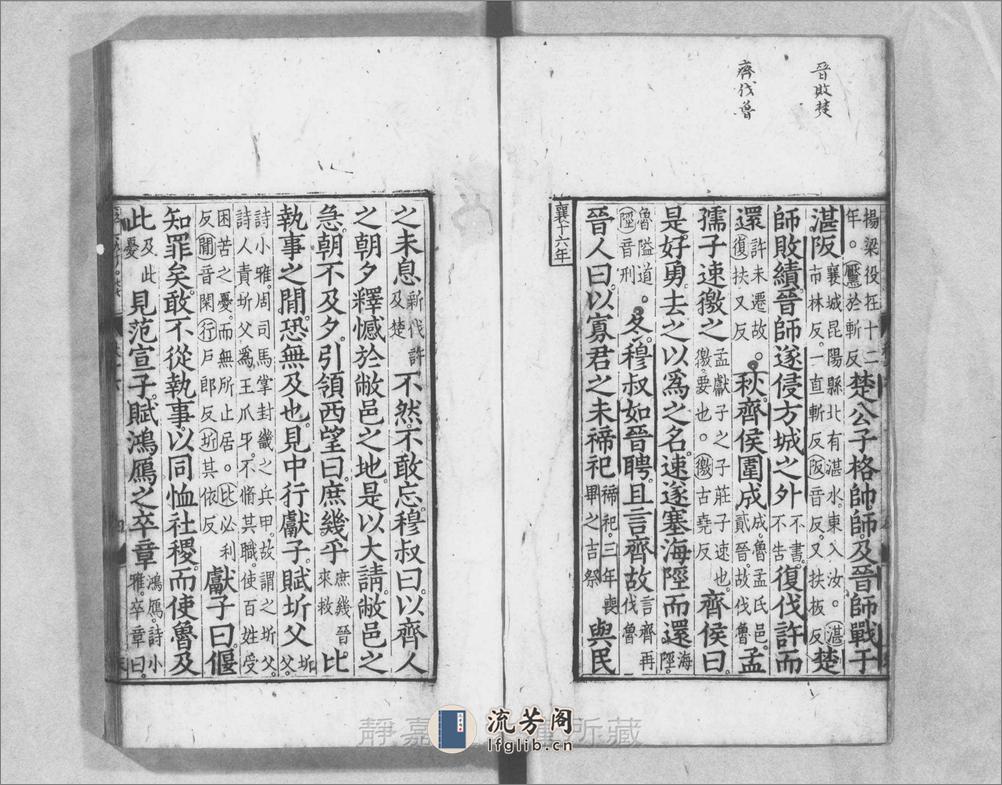 晉敗楚
齊伐魯
楊梁役在十二年。厭於斬反楚公子格帥師。及晉師戰于
湛阪襄城昆陽縣北有湛水東入汝。湛市林反。一直斬反阪音反。又扶板反楚
師敗績。晉師遂侵方城之外不書。不告復伐許而
還許未遷故。復扶又反。秋。齊侯圍成成。魯孟氏邑。貳晉。故伐魯孟
孺子速徼之孟獻子之子莊子速也。徼。要也。徼古堯反齊侯曰。
是好勇。去之以爲之名。速遂塞海陘而還海陘。
魯隘道。陘音刑。冬。穆叔如晉聘。且言齊故言齊再伐魯
晉人曰。以寡君之未禘祀禘祀。三年喪畢之吉祭與民
襄十六年
之未息新伐許及楚不然。不敢忘。穆叔曰。以齊人
之朝夕釋憾於敝邑之地。是以大請。敝邑之
急。朝不及夕。引領西望曰。庶幾乎庶幾晉來救比
執事之閒。恐無及也。見中行獻子。賦圻父圻父。
詩小雅。周司馬掌封畿之兵甲。故謂之圻父。詩人責圻父。爲王爪牙。不脩其職。使百姓受
困苦之憂。而無所止居。比必利反閒音閑行戶郎反圻其依反獻子曰。偃
知罪矣。敢不從執事。以同恤社稷。而使魯及
此及此憂見范宣子。賦鴻鴈之卒章鴻鴈。詩小雅。卒章曰。
靜嘉
所藏
流芳阁
lfglib.cn